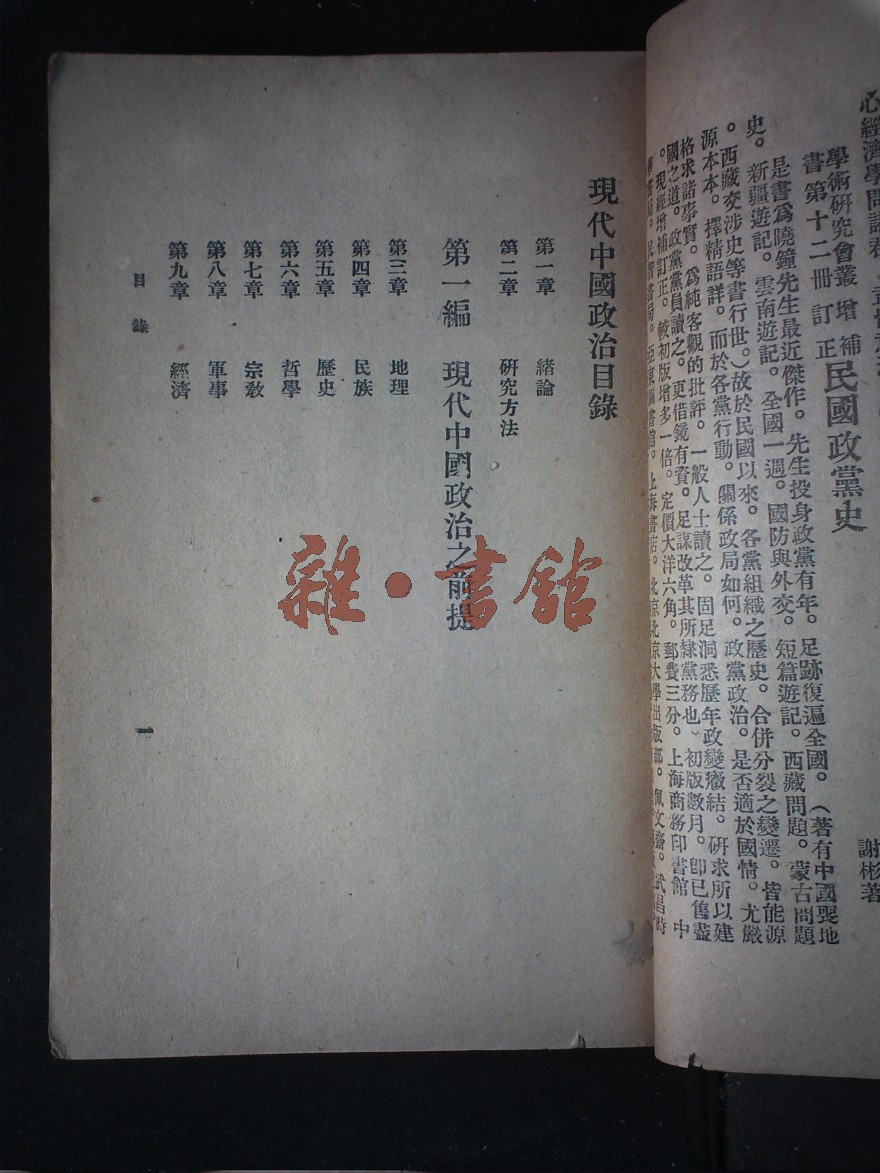 心經濟學問諸君
謝彬著
學術研究會叢
書第十二冊
增補
訂正
民國政黨史
是書爲曉鐘先生最近傑作。先生投身政黨有年。足跡復遍全國。(著有中國喪地
史。新疆遊記。雲南遊記。全國一週。國防與外交。短篇遊記。西藏問題。蒙古問題
。西藏交涉史等書行世。)故於民國以來。各黨組織之歷史。合併分裂之變遷。皆能源
源本本。擇精語詳。而於各黨行動。關係政局如何。政黨政治。是否適於國情。尤嚴
格求諸事實。爲純客觀的批評。一般人士讀之。固足洞悉歷年政變癥結。研求所以建
國之道。政黨黨員讀之。更借鏡有資。足謀改革其所隸黨務也。初版數月。卽已售盡
。現經增補訂正。較初版增多一倍。定價大洋六角。郵費三分。上海商務印書館 中
華書局。民智書局。亞東圖書館。上海書店。北京北京大學出版部。佩文齋。武昌時
現代中國政治目錄
第一章 緒論
第二章 研究方法
第一編 現代中國政治之前提
第三章 地理
第四章 民族
第五章 歷史
第六章 哲學
第七章 宗教
第八章 軍事
第九章 經濟
目錄
一
雜·書館